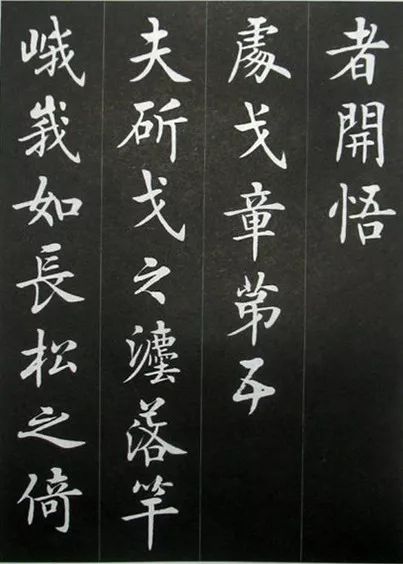 者開悟
處戈章第五
夫斫戈之灋落竿
峨峩如長松之倚